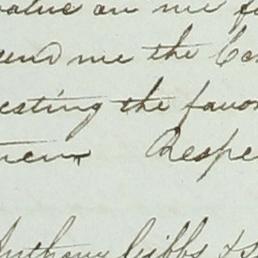 value an me f
send me the Ce
esting the favo
Respe
Anthony Gibbs & S